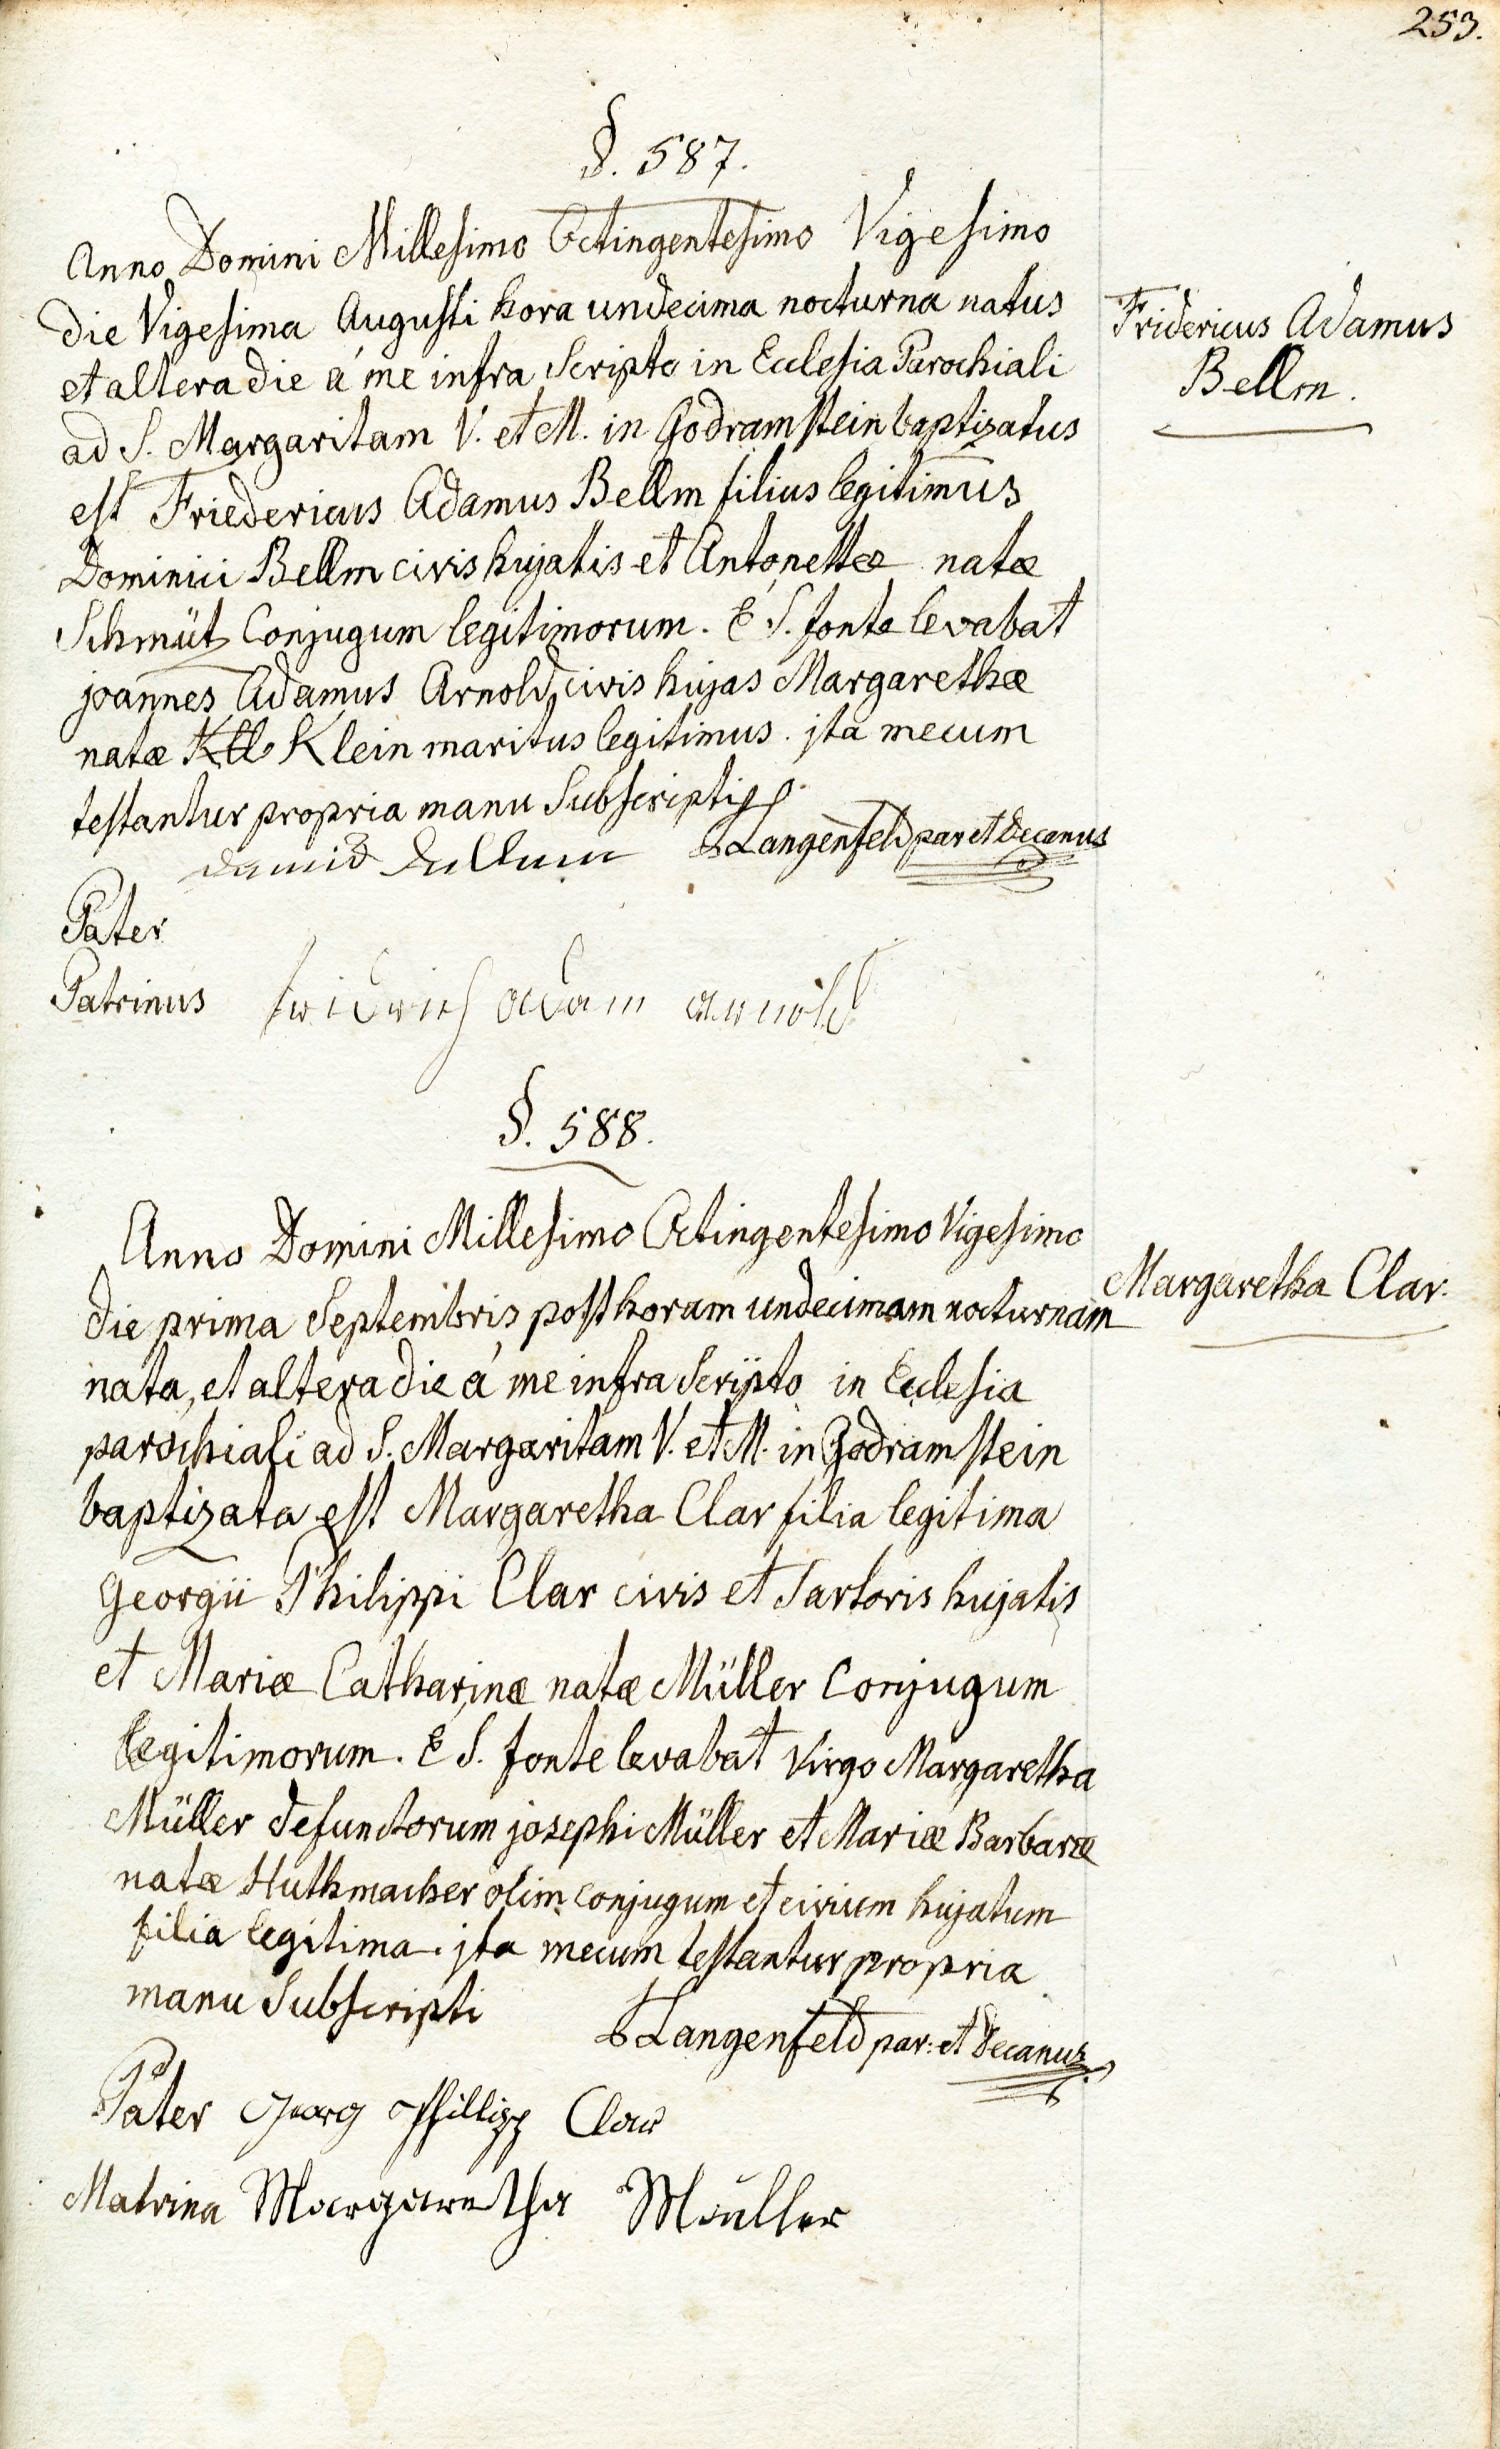 253.
§. 587.
Anno Domini Millesimo Octingentesimo Vigesimo
die Vigesima Augusti hora undecima nocturna natus
et altera die á me infra Scripto in Ecclesia Parochiali
ad S. Margaritam V. et M. in Godramstein baptizatus
est Friedericus Adamus Bellm filius legitimus
Dominici Bellm civis hujatis et Antonettæ natæ
Schmüt Conjugum legitimorum. E S. fonte levabat
joannes Adamus Arnold civis hujas Margarethæ
natæ Kll Klein maritus legitimus. jta mecum
testantur propria manu Subscripti
Langenfeld par et decanus
Fridericus Adamus
Bellm.
Pater
Patrinus fridrich adam arnold
§. 588.
Anno Domini Millesimo Octingentesimo Vigesimo
die prima Septembris post horam undecimam nocturnam
nata, et altera die á me infra Scripto in Ecclesia
parochiali ad S. Margaritam V. et M. in Godramstein
baptizata est Margaretha Clar filia legitima
Georgii Philippi Clar civis et Sartoris hujatis
et Mariæ Catharinæ natæ Müller Conjugum
legitimorum. E S. fonte levabat Virgo Margaretha
Müller defunctorum josephi Müller et Mariæ Barbaræ
natæ Huthmacher olim conjugum et civium hujatum
filia legitima. jta mecum testantur propria
manu Subscripti
Langenfeld par: et decanus
Margaretha Clar.
Pater Georg Phillipp Clar
Matrina Margaretha Müller